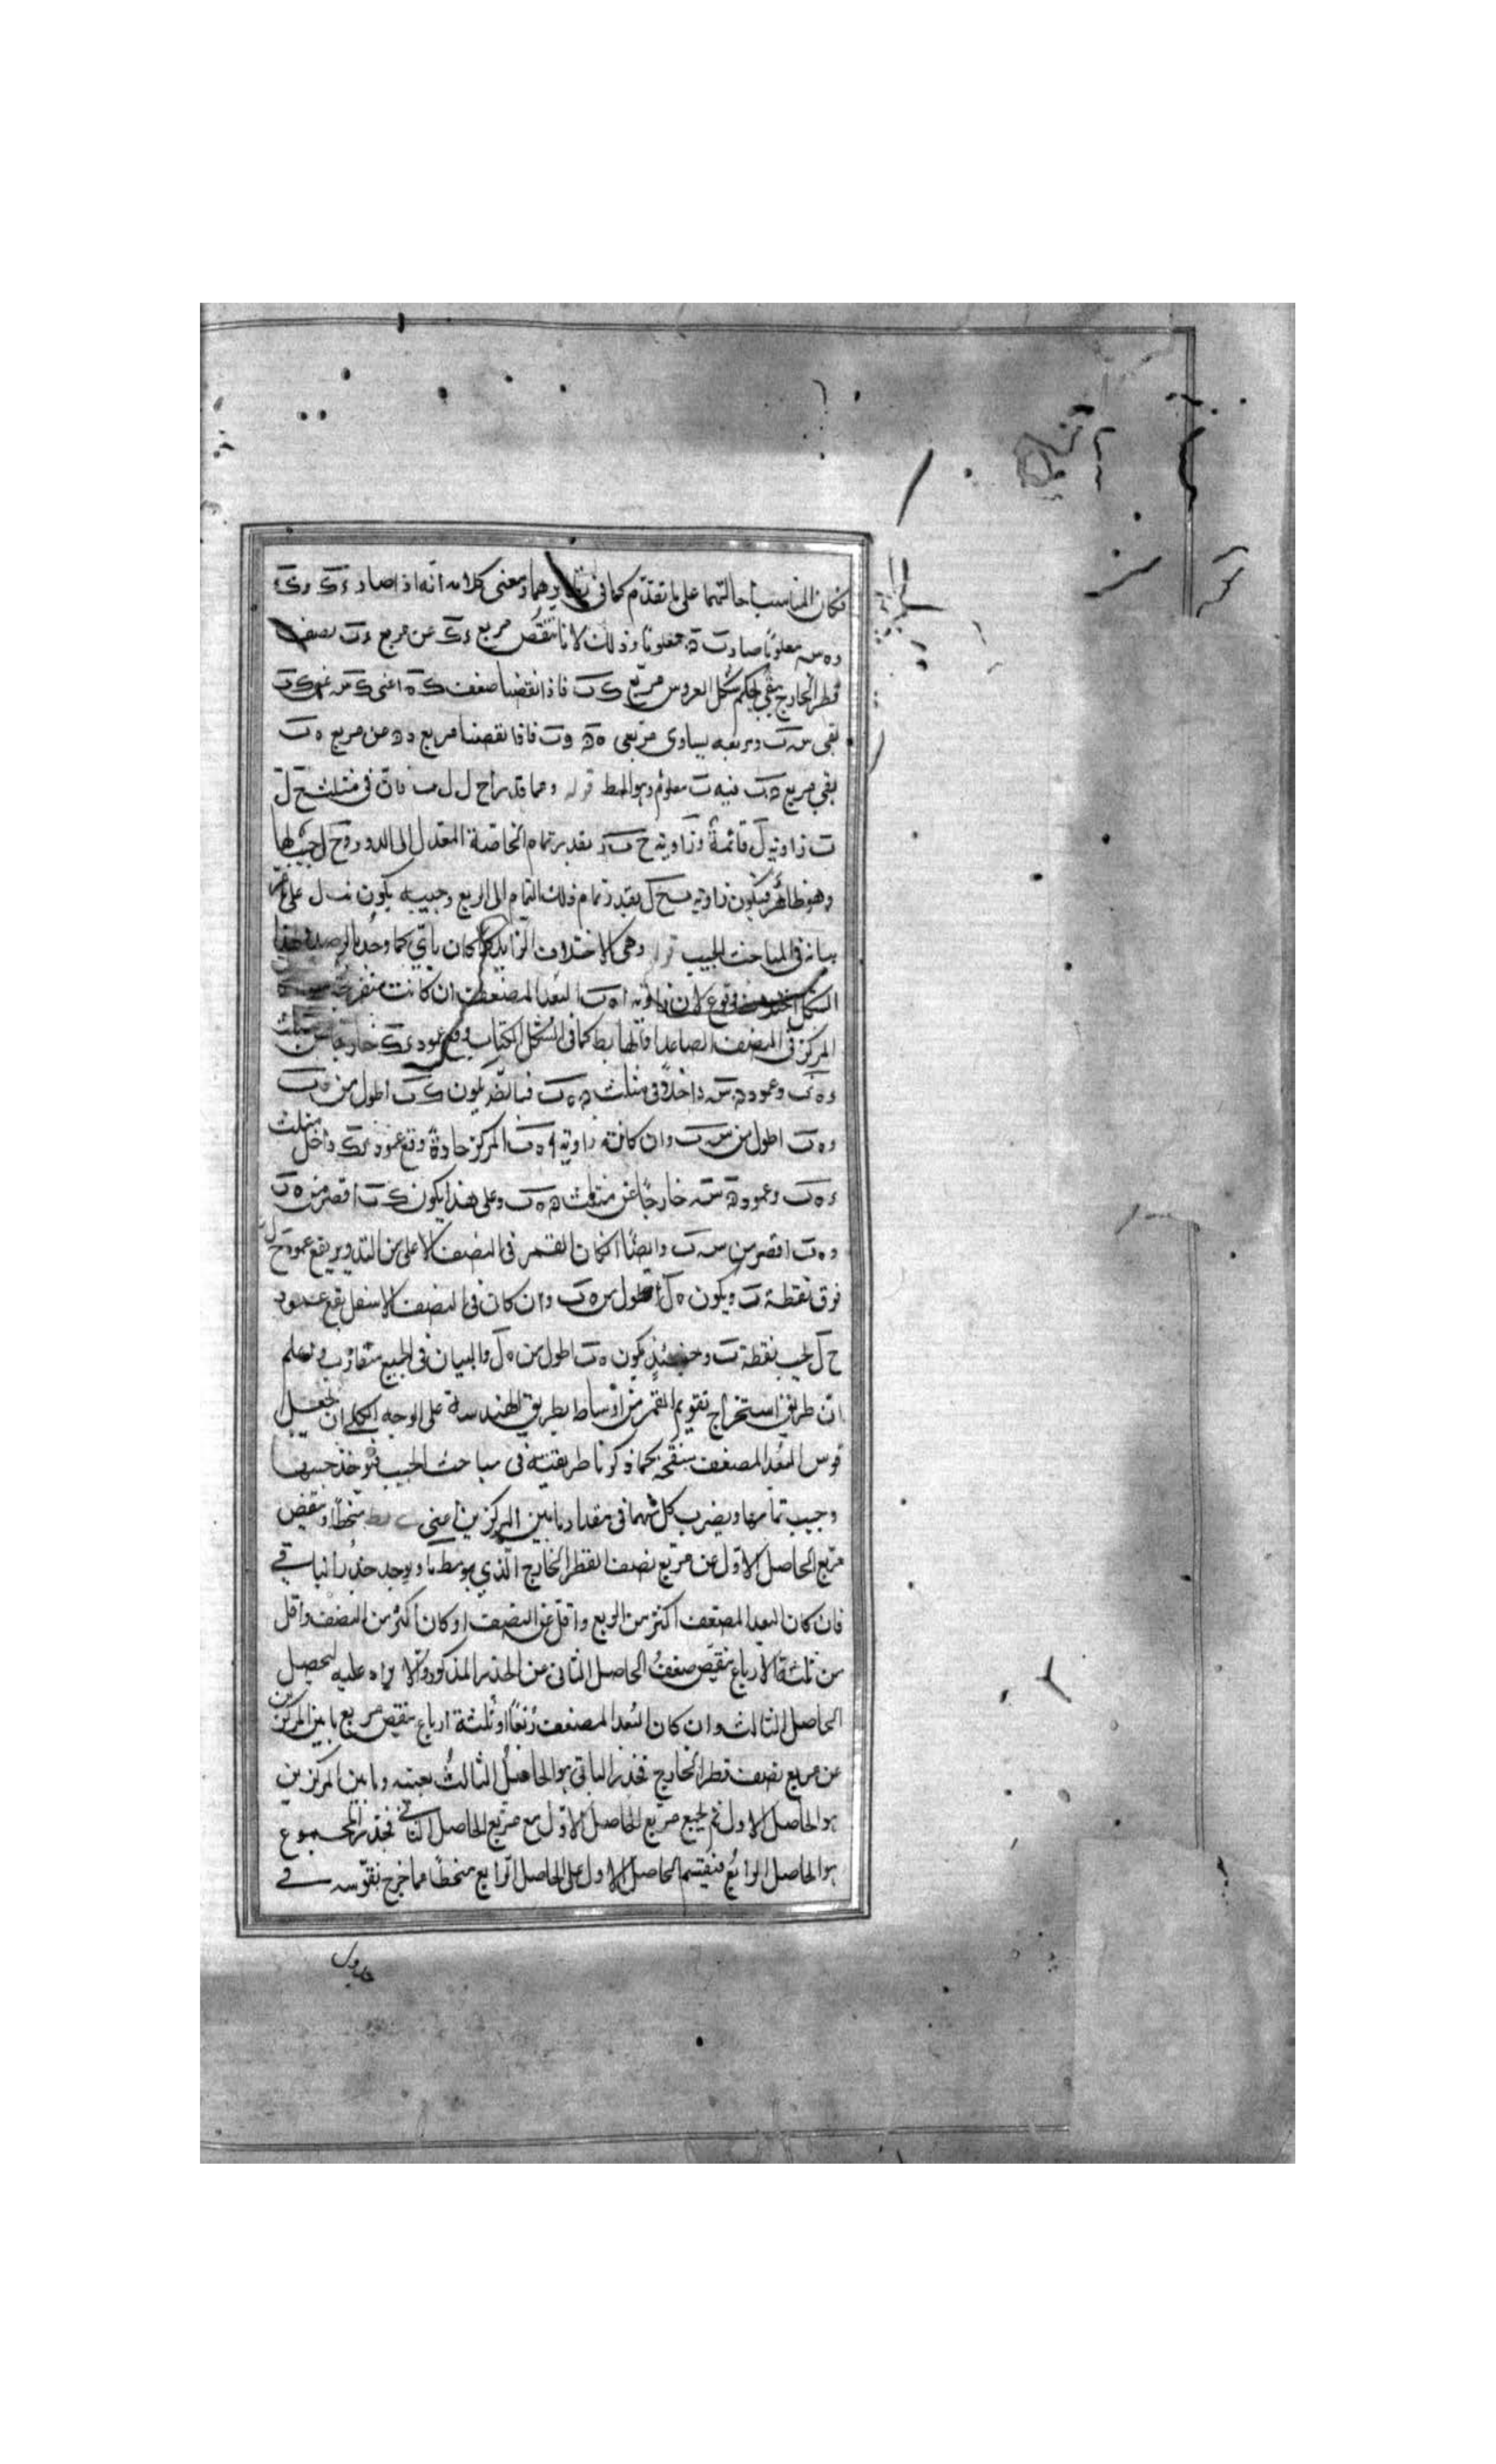 فكان المناسب احالتهما على ما تقدم كما فى وهما ومعنى كلامه انه اذا صار ءك وى ك
وه س معلومًا صار ب ه معلومًا وذلك لانا ننقص مربع ءك عن مربع ءب نصف
قطر الخارج يبقى بحكم شكل العروس مربع ك ب فاذا نقصنا ضعف ك ه اعنى ك س عن ك ب
بقى س ب ومربعه يساوى مربعى ه ب فاذا نقصنا مربع من مربع ه ب
بقى مربع معلوم وهو المط قوله ومما قدر ا ح ل ل ب فان فى مثلث ح ل
ب زاوية ل قائمة وزاوية ح ب ل بقدر تمام الخاصة المعدل الى الدور و ح ل جيبها
وهو ظاهر فيكون زاوية ب ح ل بقدر تمام ذلك التمام الى الربع وجيبه يكون ب ل على ما مر
بيانه فى المباحث الجيب قوله وهى الاختلاف الزايد كما كان ياتى كما وجد بالرصد وهذا
الشكل وقوع لان زاوية ا ه ب البعد المضعف ان كانت منفرجة
المركز فى النصف الصاعد ا فالهابط كما فى الشكل الكتاب وقع عمود ى ك خارجا عن مثلث
ء ه ب وعمود س داخلا فى مثلث ه ب فيكون ك ب اطول من ه ب
و ه ب اطول من س ب وان كانت زاوية ا ه ب المركز حادة وقع عمود ى ك داخل مثلث
ء ه ب وعمود س خارجًا عن مثلث ه ب وعلى هذا يكون ك ب اقصر من ه ب
و ه ب اقصر من س ب وايضًا ان كان القمر فى النصف الاعلى من التدوير يقع عمود ح ل
فوق نقطة ب ويكون ه ل اطول من ه ب وان كان فى النصف الاسفل يقع عمود
ح ل تحت نقطة ب وحينئذ يكون ه ب اطول من ه ل والبيان فى الجميع متقارب ونعلم
ان طريق استخراج تقويم القمر من اوساط بطريق الهندسة على الوجه الكلى ان نجعل
قوس البعد المضعف منقحة كما ذكرنا طريقته فى مباحث الجيب فنوخذ جيبها
وجيب تمامها ويضرب كل منهما فى مقدار ما بين المركزين اعنى منحطًا وننقص
مربع الحاصل الاول عن مربع نصف القطر الخارج الذى هو مط ما ويوجد جذر الباقى
فان كان البعد المضعف اكثر من الربع واقل عن النصف او كان اكثر من النصف واقل
من ثلثة الارباع ننقص ضعف الحاصل الثانى من الجذر المذكور والا يزاد عليه ليحصل
الحاصل الثالث وان كان البعد المضعف ربعًا او ثلثة ارباع ننقص مربع ما بين المركزين
عن مربع نصف قطر الخارج فجذر الباقى هو الحاصل الثالث بعينه وما بين المركزين
هو الحاصل الاول ثم نجمع مربع الحاصل الاول مع مربع الحاصل الثالث فجذر المجموع
هو الحاصل الرابع فنقسم الحاصل الاول على الحاصل الرابع منحطًا فما خرج نقوسه فى
جدول